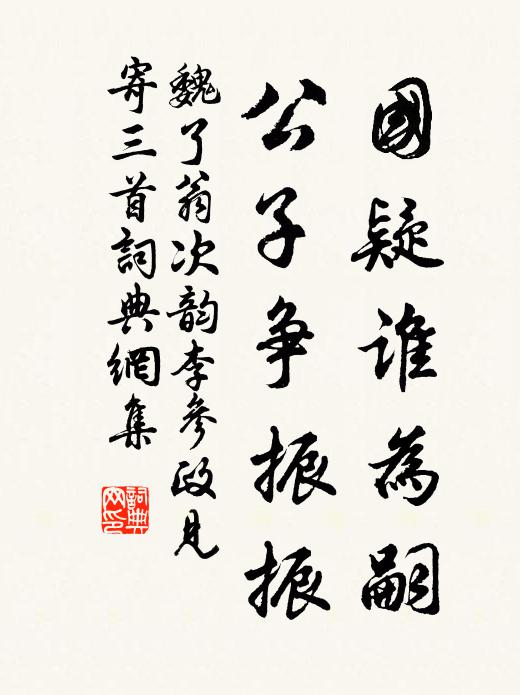 國疑谁為嗣
公子争振振
魏了翁次韵李參政見
寄三首詞典網集
詞典
网印